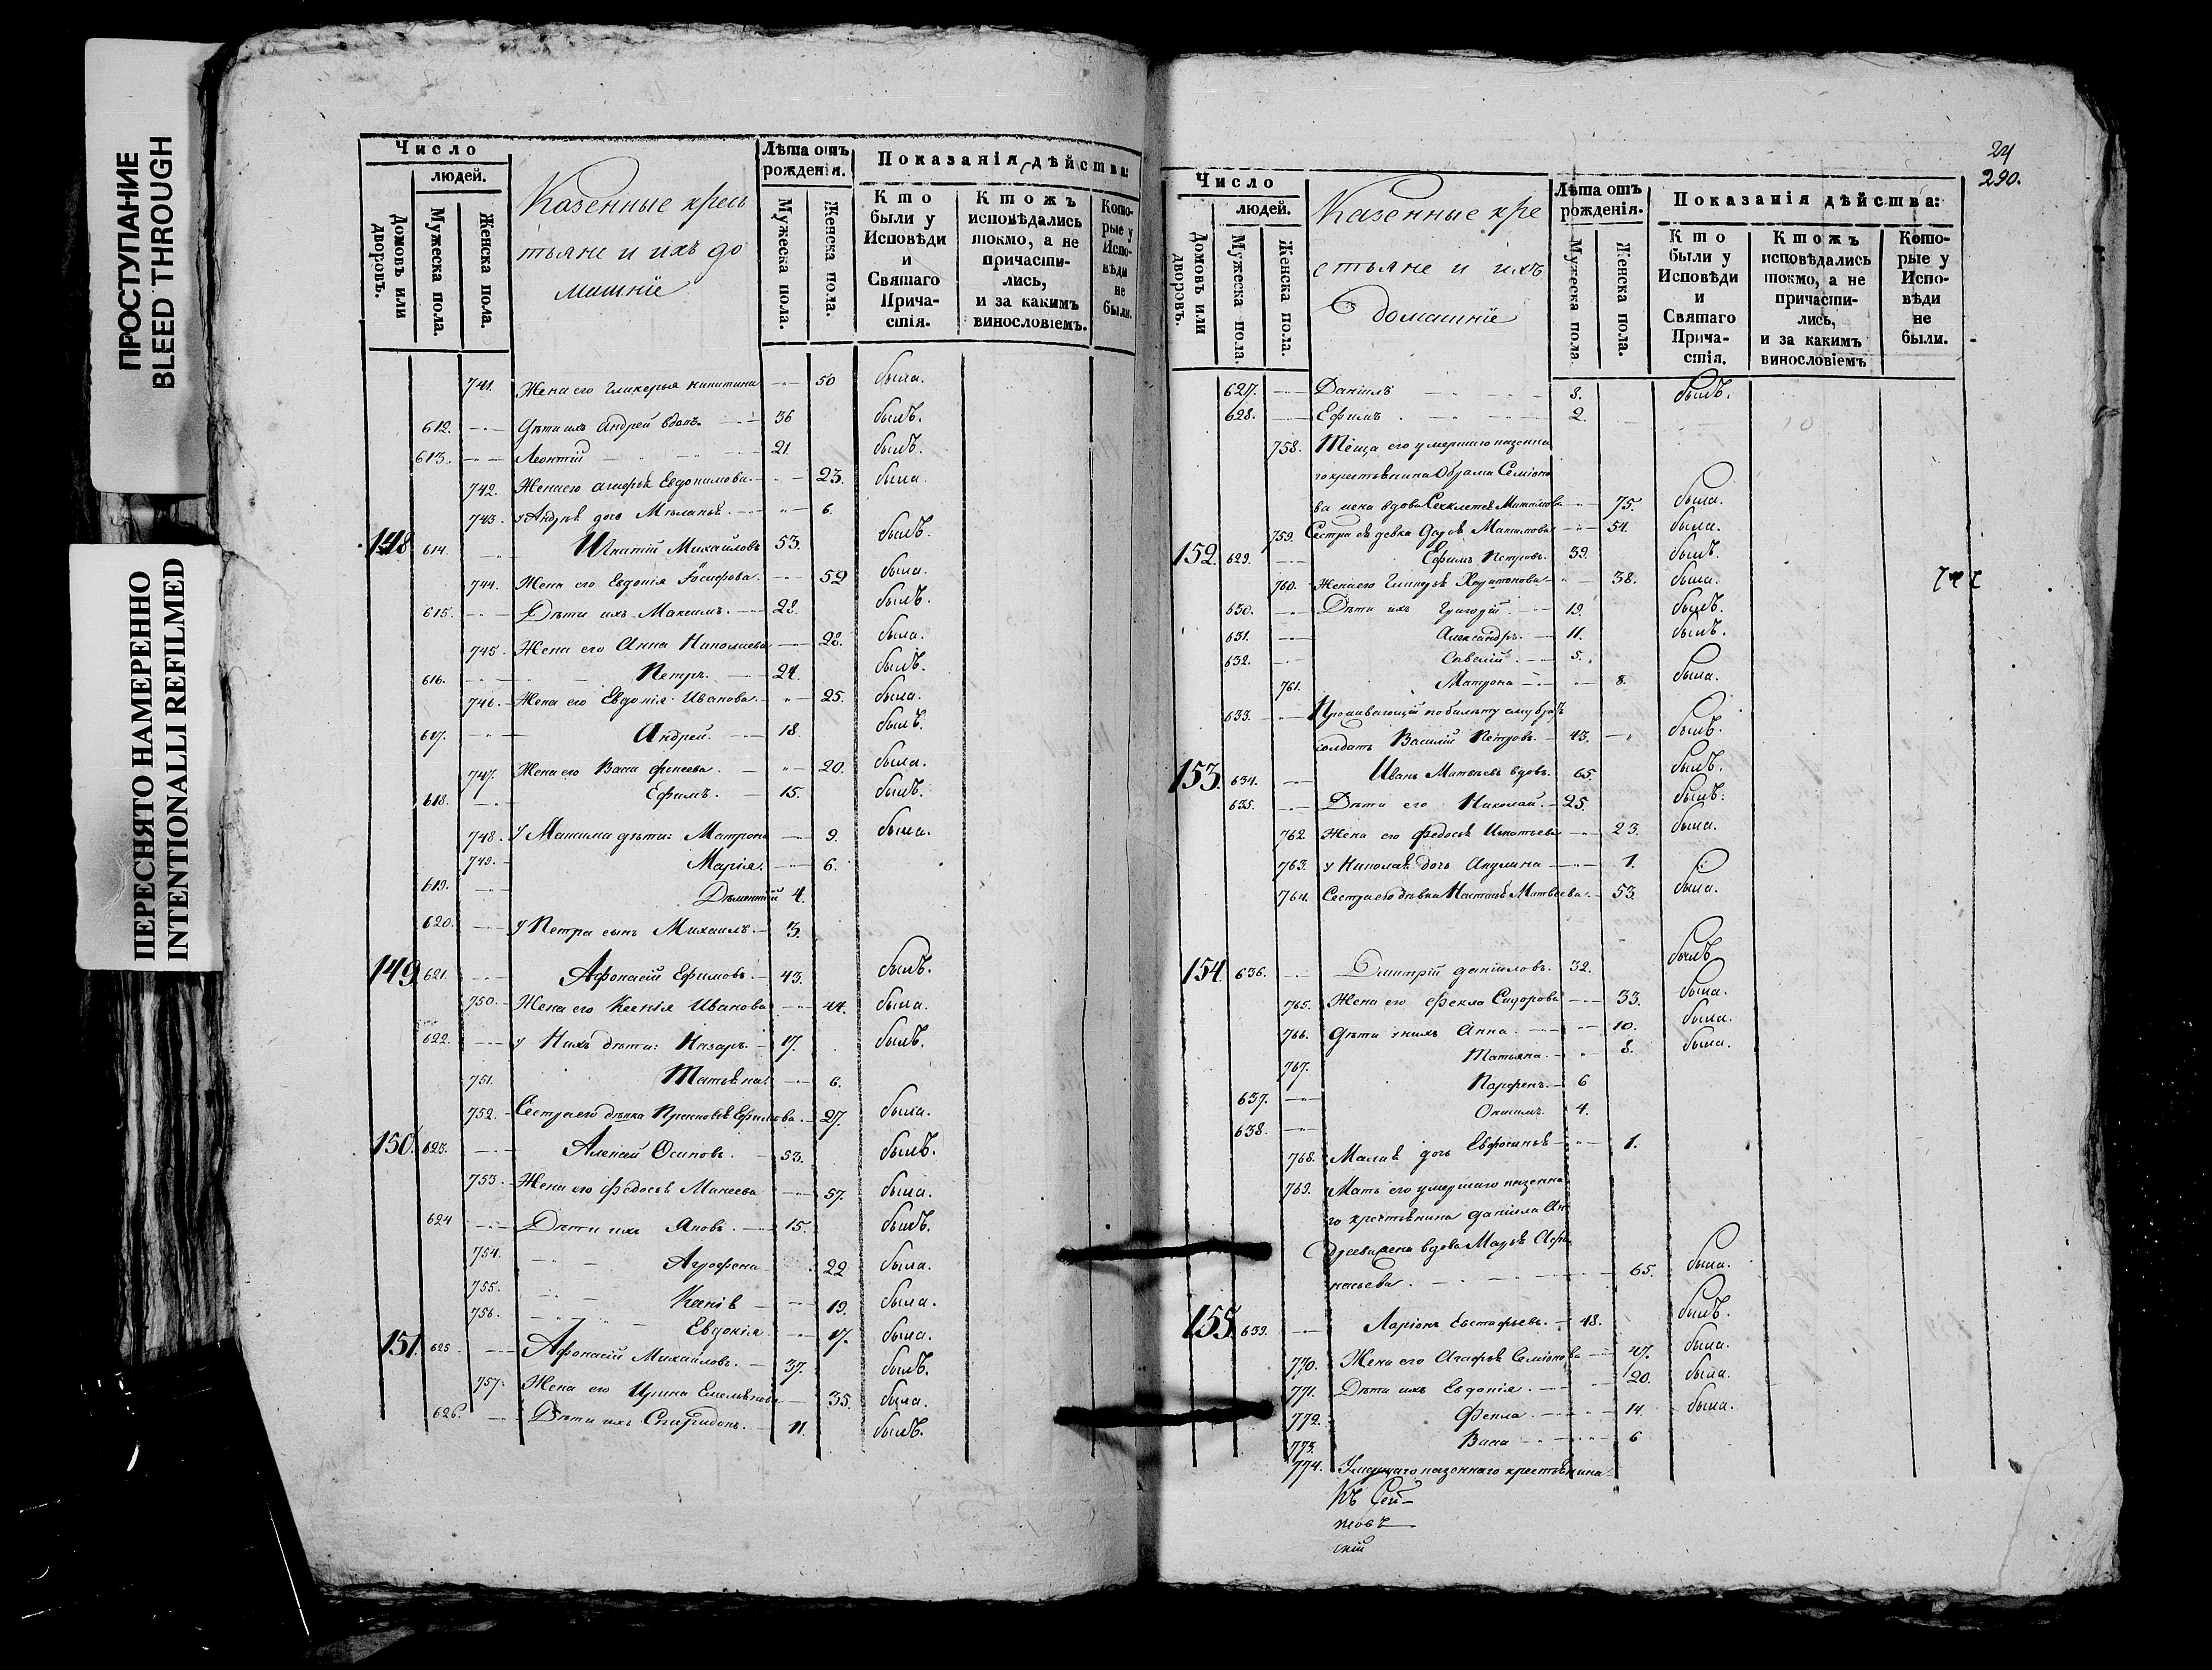 ПРОСТУПАНИЕ
BLEED THROUGH
ПЕРЕСНЯТО НАМЕРЕННО
INTENTIONALLI REFILMED
Число
людей.
Домовъ или дворовъ.
Мужеска пола.
Женска пола.
Казенные крес
тьяне и ихъ до
машніе
Лѣта отъ рожденія.
Мужеска пола.
Женска пола.
Показанія дѣйства:
Кто были у Исповѣди и Святаго Прича-стія.
Ктожъ исповѣдались токмо, а не причасти-лись, и за какимъ винословіемъ.
Кото-рые у Испо-вѣди не были.
741. Жена его Гликерья Никитина 50 была.
612. Дѣти ихъ Андрей вдовъ 36 былъ.
613. Леонтій 21 былъ.
742. Жена его Агафья Евдокимова 23. была
743. у Андрѣя дочь Меланья 6.
148 614. Игнатій Михайловъ 53. былъ.
744. Жена его Евдокія Іосифова 52 была.
615. Дѣти ихъ Максимъ. 28. былъ.
745. Жена его Анна Николаева 28. была.
616. Петръ. 24. былъ.
746. Жена его Евдокія Иванова. 25. была.
617. Андрей. 18. былъ.
747. Жена его Васа 20. была.
618. Ефимъ. 15. былъ.
748. У Максима дѣти: Матрона 9. была.
749. Марія. 6.
619. Дементій 4.
620. у Петра сынъ Михаилъ. 3.
149 621. Афонасій Ефимовъ. 43. былъ.
750. Жена его Ксенія Иванова 44. была.
622. у Нихъ дѣти: Назаръ. 17. былъ.
751. Татьяна. 6.
752. Сестра его дѣвка Прасковья Ефимова. 27. была.
150. 623. Алексей Осиповъ. 53. былъ.
753. Жена его Федосья Макеева 57. была.
624 Дѣти ихъ Яковъ. 15. былъ.
754. Агрофена 22 была.
755. Ксенія 19. была.
756. Евдокія 17. была.
151. 625 Афонасій Михайловъ. 37. былъ.
757. Жена его Ирина Емельянова 35. была.
626. Дѣти ихъ Спиридонъ. 11. былъ.
24
290.
Число
людей.
Домовъ или дворовъ.
Мужеска пола.
Женска пола.
Казенные кре
стьяне и ихъ
домашніе
Лѣта отъ рожденія.
Мужеска пола
Женска пола.
Показанія дѣйства:
Кто были у Исповѣди и Святаго Прича-стія.
Ктожъ исповѣдались токмо, а не причасти-лись, и за какимъ винословіемъ
Кото-рые у Испо-вѣди не были.
627. Даніилъ 8. былъ.
628. Ефимъ 2.
758. Теща его умершаго казенна
го крестьянина Абрама Семіоно
ва жена вдова 75. была.
759. Сестра ея девка Дарья Максимова 54. была.
152. 629. Ефимъ Петровъ. 39. былъ.
760. Жена его Гликерья Харитонова 38. была.
630. Дѣти ихъ Григорій 19. былъ.
631. Александръ. 11. былъ.
632. Савелій. 5.
761. Матрона 8. была.
633. Проживающій по билету ему братъ
солдатъ Василій Петровъ. 43. былъ.
153. 634. Иванъ Матвеевъ вдовъ. 65. былъ.
635. Дѣти его Николай. 25. былъ.
762. Жена его Федосья Игнатьева 23. была.
763. у Николая дочь Акулина 1.
764. Сестра его дѣвка Настасья Матвеева. 53. была.
154. 636. Дмитрій Даніиловъ. 32. былъ
765. Жена его Фекла Сидорова 33. была.
766. Дѣти у нихъ Анна. 10. была.
767. Татьяна. 8. была.
637. Парфенъ. 6
638. 4.
768. Малая дочь Евфросинья 1.
769. Мать его умершаго казенна
го крестьянина Даніила Ан
дреева жена вдова Марья Афо
насьева. 65. была.
155. 639. Ларіонъ Евстафьевъ. 48. былъ.
770. Жена его Агафья Семіонова 47. была.
771. Дѣти ихъ Евдокія. 20. была.
772. Фекла. 14. была.
773. Васса 6
774. Умершаго казеннаго крестьянина